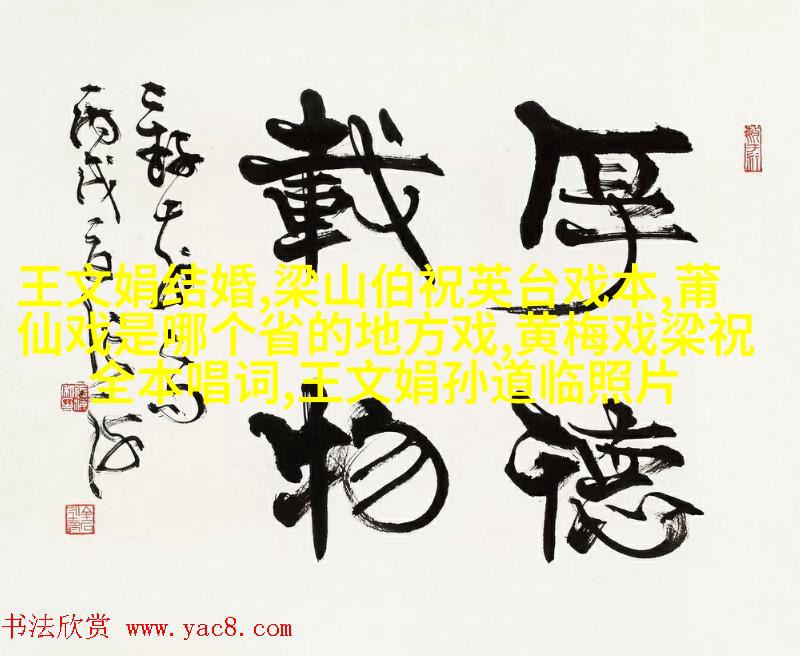 厚德
載物
丙戌
王文娟结婚,梁山伯祝英台戏本,莆
仙戏是哪个省的地方戏,黄梅戏梁祝
全本唱词,王文娟孙道临照片
书法欣赏 www.yac8.com